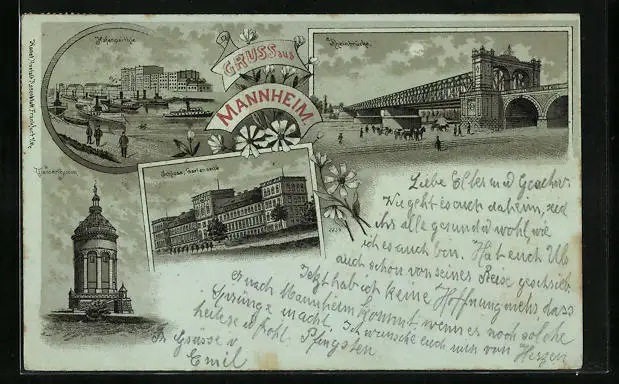 Hafenparthie
GRUSS aus
MANNHEIM.
Rheinbrücke.
Wasserthurm
Schloss, Gartenseite
Liebe Eltern und Geschw.
Wie geht es euch daheim, seid
ihr alle gesund u wohl, wie
ich es auch bin. Hat euch
auch schon von seiner Reise geschrieb.
Jetzt hab ich keine Hoffnung mehr dass
er nach Mannheim kommt, wenn er noch solche
Sprünge macht. Ich wünsche euch nun von Herzen
heitere u frohl. Pfingsten
Grüsse v
Emil